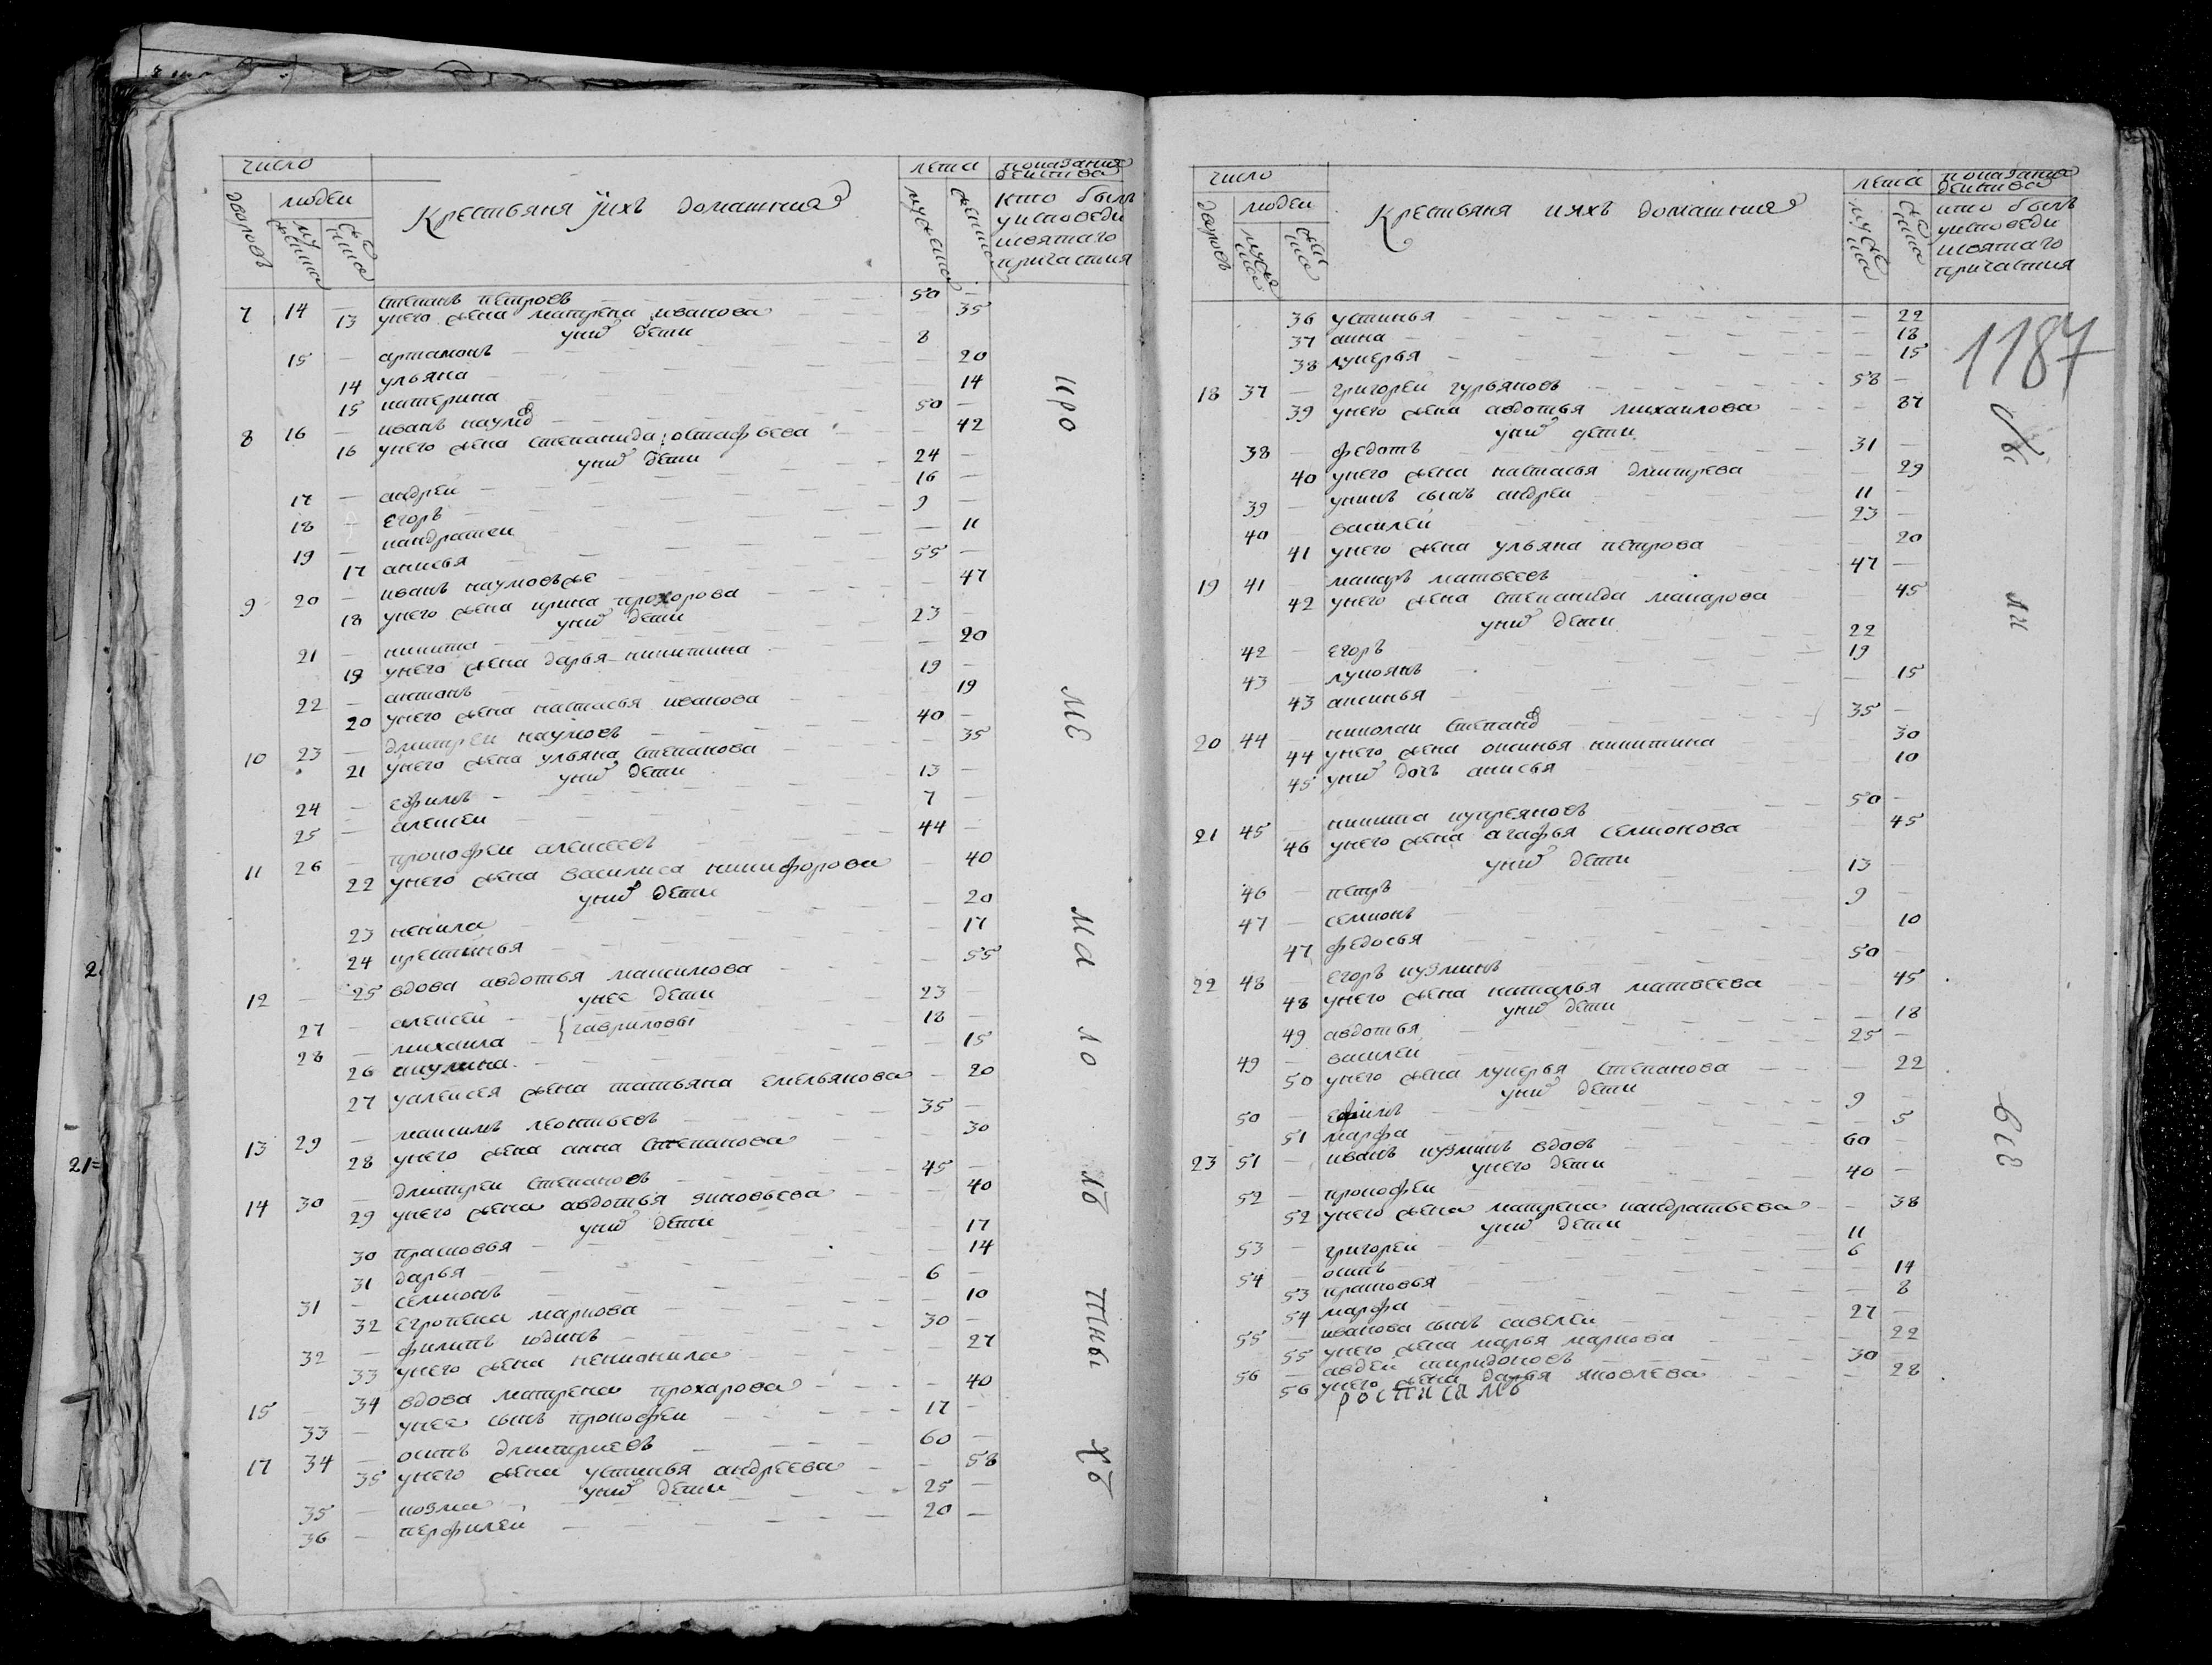 число
дворовъ
людеи
мужеска
женска
Крестьяня ихъ домашния
лета
мужеска
женска
показания
деиства
кто былъ
уисповеди
исвятаго
причастия
7 14 — степанъ петровъ — 50 —
13 унего жена матрена иванова — 35
унихъ дети
15 — артамонъ — 8
14 ульяна — 20
15 катерина — 14
8 16 — иванъ наумов — 50 —
16 унего жена степанида остафьева — 42
унихъ дети
17 — андреи — 24 —
18 — егоръ — 16 —
19 — кандратеи — 9
17 анисья — 11
9 20 — иванъ наумовъ же — 55 —
18 унего жена ирина прохорова — 47
унихъ дети
21 — никита — 23 —
19 унего жена дарья никитина — 20
22 — антонъ — 19 —
20 унего жена настасья иванова — 19
10 23 — дмитреи наумовъ — 40 —
21 унего жена ульяна степанова — 35
унихъ дети
24 — ефимъ — 13 —
25 — алексеи — 7 —
11 26 — прокофеи алексеевъ — 44 —
22 унего жена василиса никифорова — 40
унихъ дети
23 ненила — 20
24 крестинья — 17
12 — 25 вдова авдотья максимова — 55
унее дети
27 — алексеи — 23 —
гавриловы
28 — михаила — 18 —
26 акулина — 15
27 уалексея жена татьяна емельянова — 20
13 29 — максимъ леонтьевъ — 35 —
28 унего жена анна степанова — 30
14 30 — дмитреи степановъ — 45 —
29 унего жена авдотья зиновьева — 40
унихъ дети
30 прасковья — 17
31 дарья — 14
31 — семионъ — 6 —
32 егропена маркова — 10
32 — филипъ юдинъ — 30 —
33 унего жена неионила — 27
15 — 34 вдова матрена прохарова — 40
33 — унее сынъ прокофеи — 17 —
17 34 — осипъ дмитриевъ — 60 —
35 унего жена устинья андреева — 58
унихъ дети
35 — козма — 25 —
36 — перфилеи — 20 —
кро
ме
ма
ло
лѣ
тны
хъ
число
дворовъ
людеи
мужеска
женска
Крестьяня ихъ домашния
лета
мужеска
женска
показания
деиства
кто былъ
уисповеди
исвятаго
причастия
1187
36 устинья — 22
37 анна — 18
38 лукерья — 15
18 37 — григореи гурьяновъ — 58 —
39 унего жена авдотья михаилова — 87
унихъ дети
38 — федотъ — 31 —
40 унего жена настасья дмитрева — 29
39 — унихъ сынъ андреи — 11 —
40 — василеи — 23 —
41 унего жена ульяна петрова — 20
19 41 — макаръ матвеевъ — 47 —
42 унего жена степанида макарова — 45
унихъ дети
42 — егоръ — 22
43 — лукоянъ — 19
43 аксинья — 15
20 44 — николаи степанов — 35 —
44 унего жена оксинья никитина — 30
45 унихъ дочь анисья — 10
21 45 — никита купреяновъ — 50 —
46 унего жена агафья семионова — 45
унихъ дети
46 — петръ — 13 —
47 — семионъ — 9 —
47 федосья — 10
22 48 — егоръ кузминъ — 50 —
48 унего жена наталья матвеева — 45
унихъ дети
49 авдотья — 18
49 — василеи — 25 —
50 унего жена лукерья степанова — 22
унихъ дети
50 — ефимъ — 9 —
51 марфа — 5
23 51 — иванъ кузминъ вдовъ — 60 —
унего дети
52 — прокофеи — 40 —
52 унего жена матрена кандратьева — 38
унихъ дети
53 — григореи — 11
54 — осипъ — 6
53 прасковья — 14
54 марфа — 8
55 — иванова сынъ савелеи — 27 —
55 унего жена марья маркова — 22
56 — авдеи спиридоновъ — 30 —
56 унего жена дарья яковлева — 28
росписалъ
ли
все